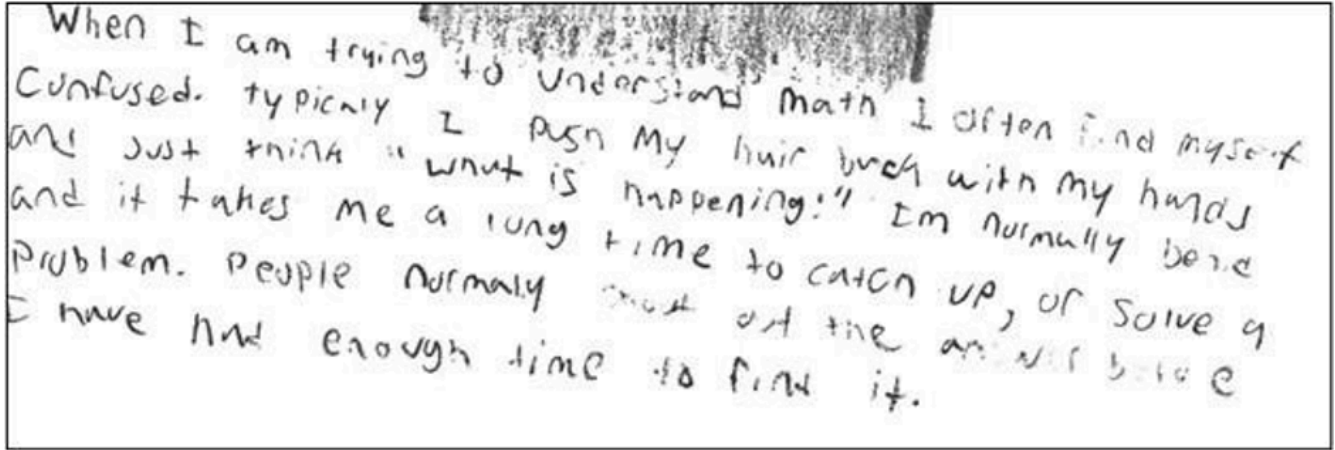 When I am trying to understand math I often find myself
Confused. typicaly I push my hair back with my hands
and just think "what is happening!" Im normally
and it takes me a long time to catch up, or solve a
problem. People normaly out the before
I have had enough time to find it.